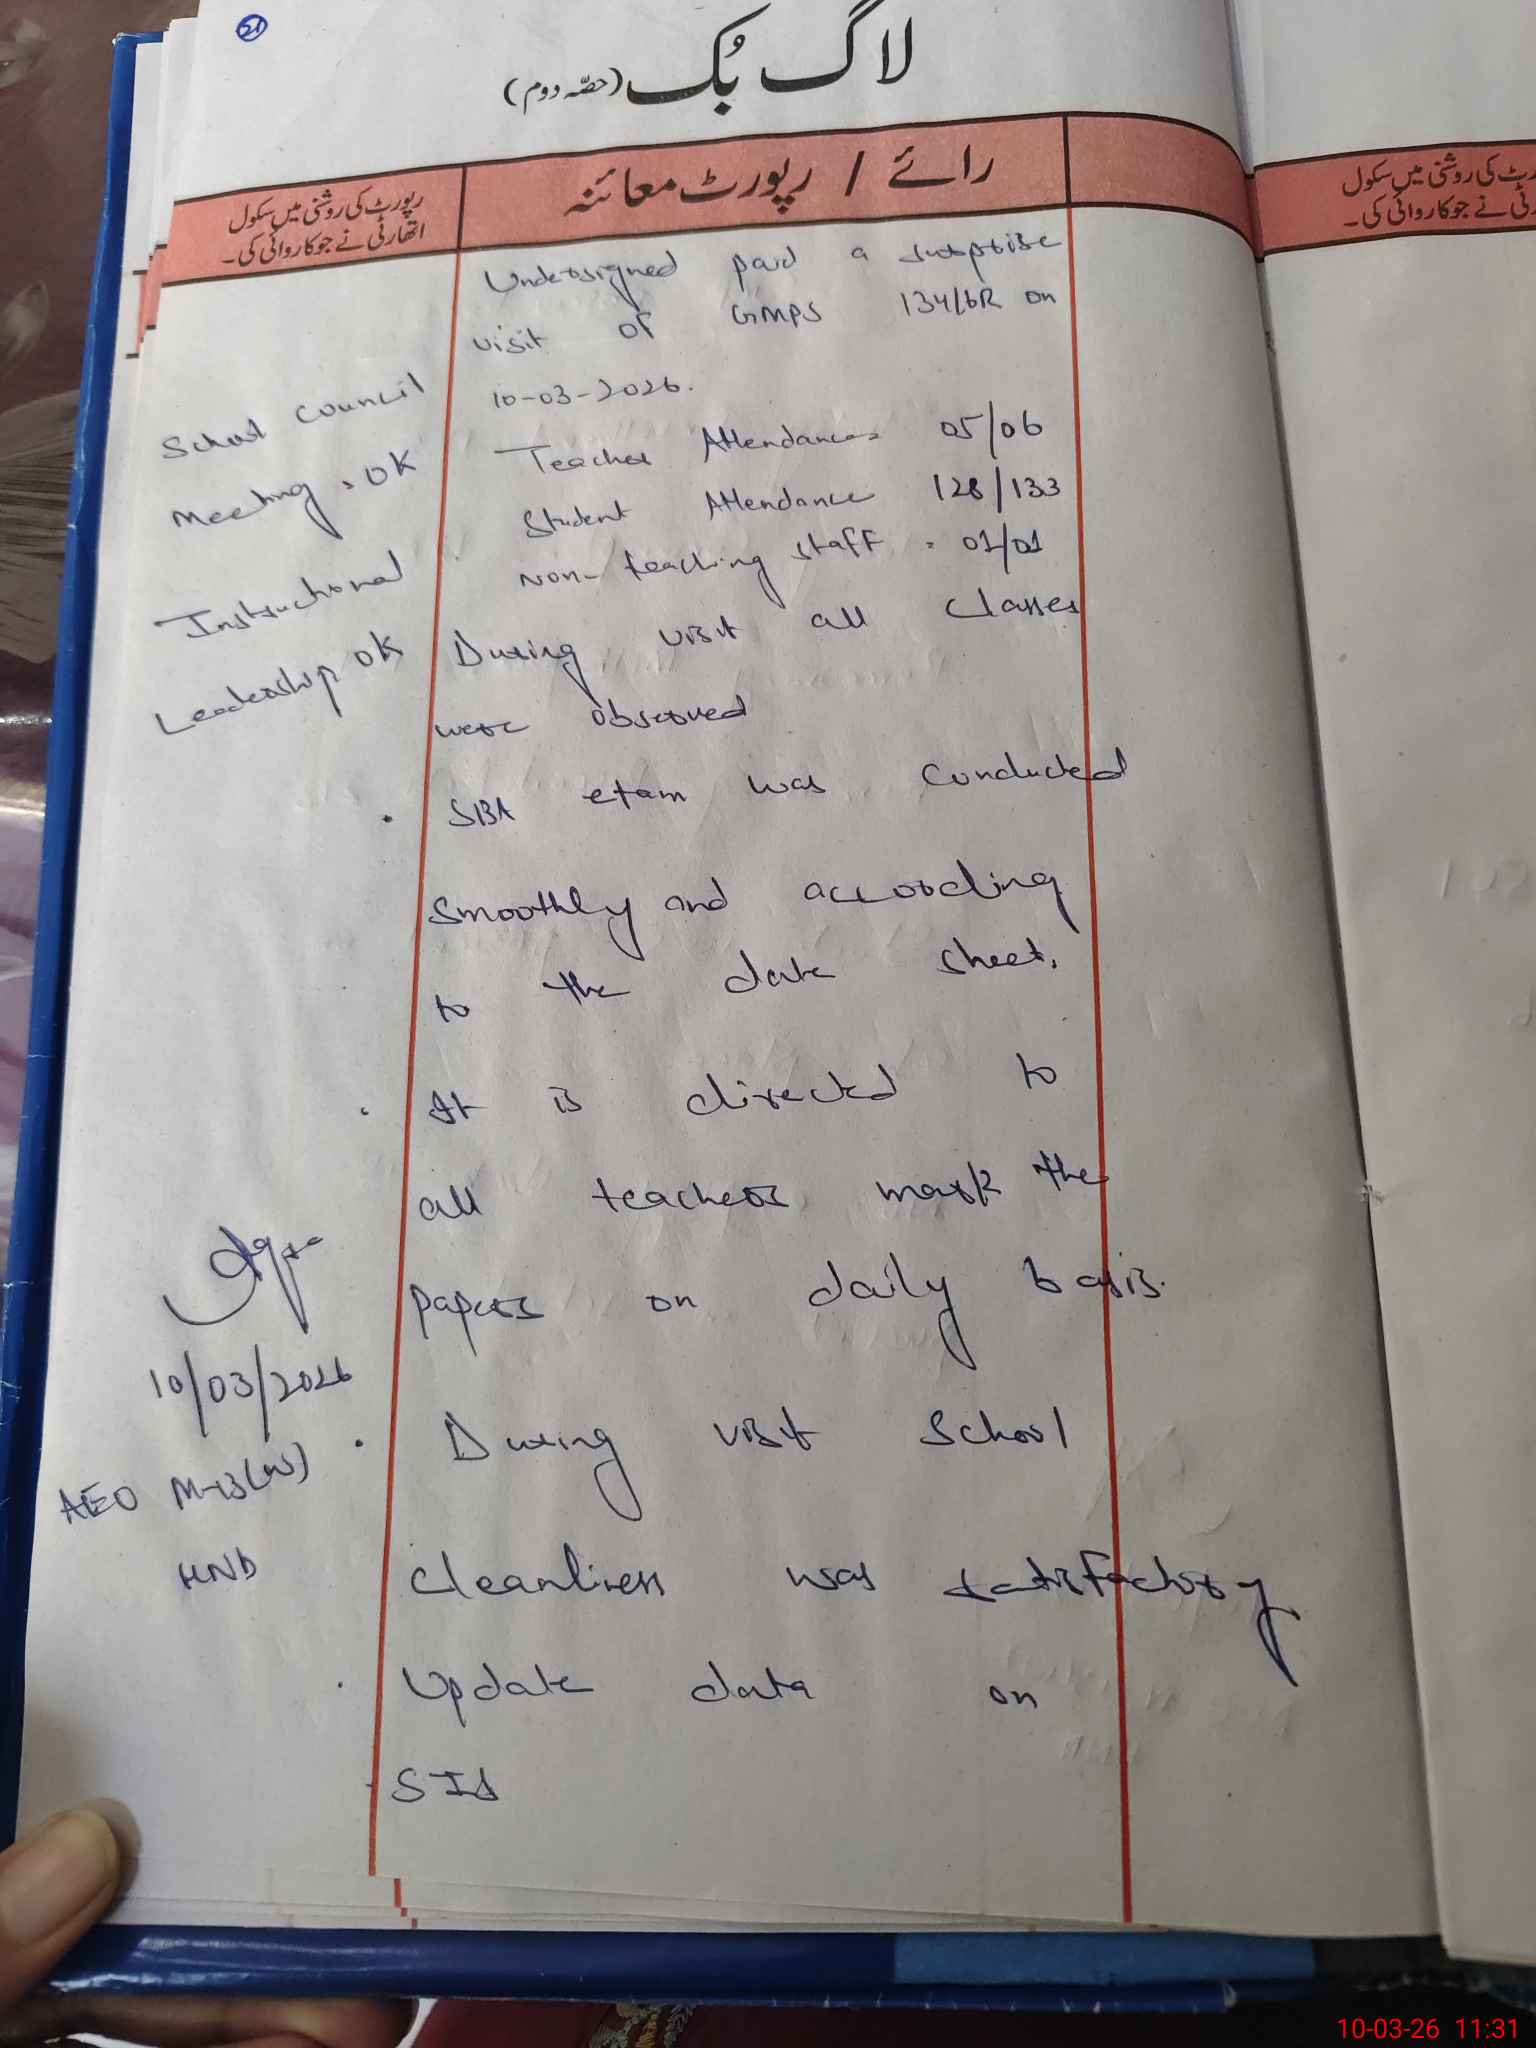 21
لاگ بُک (حصّہ دوم)
رائے / رپورٹ معائنہ
رپورٹ کی روشنی میں سکول
اتھارٹی نے جو کاروائی کی۔
Undersigned paid a surprise
visit of GMPS 134/6R on
10-03-2026.
Teacher Attendance = 05/06
Student Attendance 128/133
Non-teaching staff = 01/01
During visit all classes
were observed
• SBA exam was conducted
smoothly and according
to the date sheet.
• It is directed to
all teachers mark the
papers on daily basis.
• During visit School
cleanliness was satisfactory
• Update data on
SIS
School council
meeting = OK
Instructional
Leadership OK
10/03/2026
AEO M-13(W)
HND
رپورٹ کی روشنی میں سکول
نے جو کاروائی کی۔
10-03-26 11:31